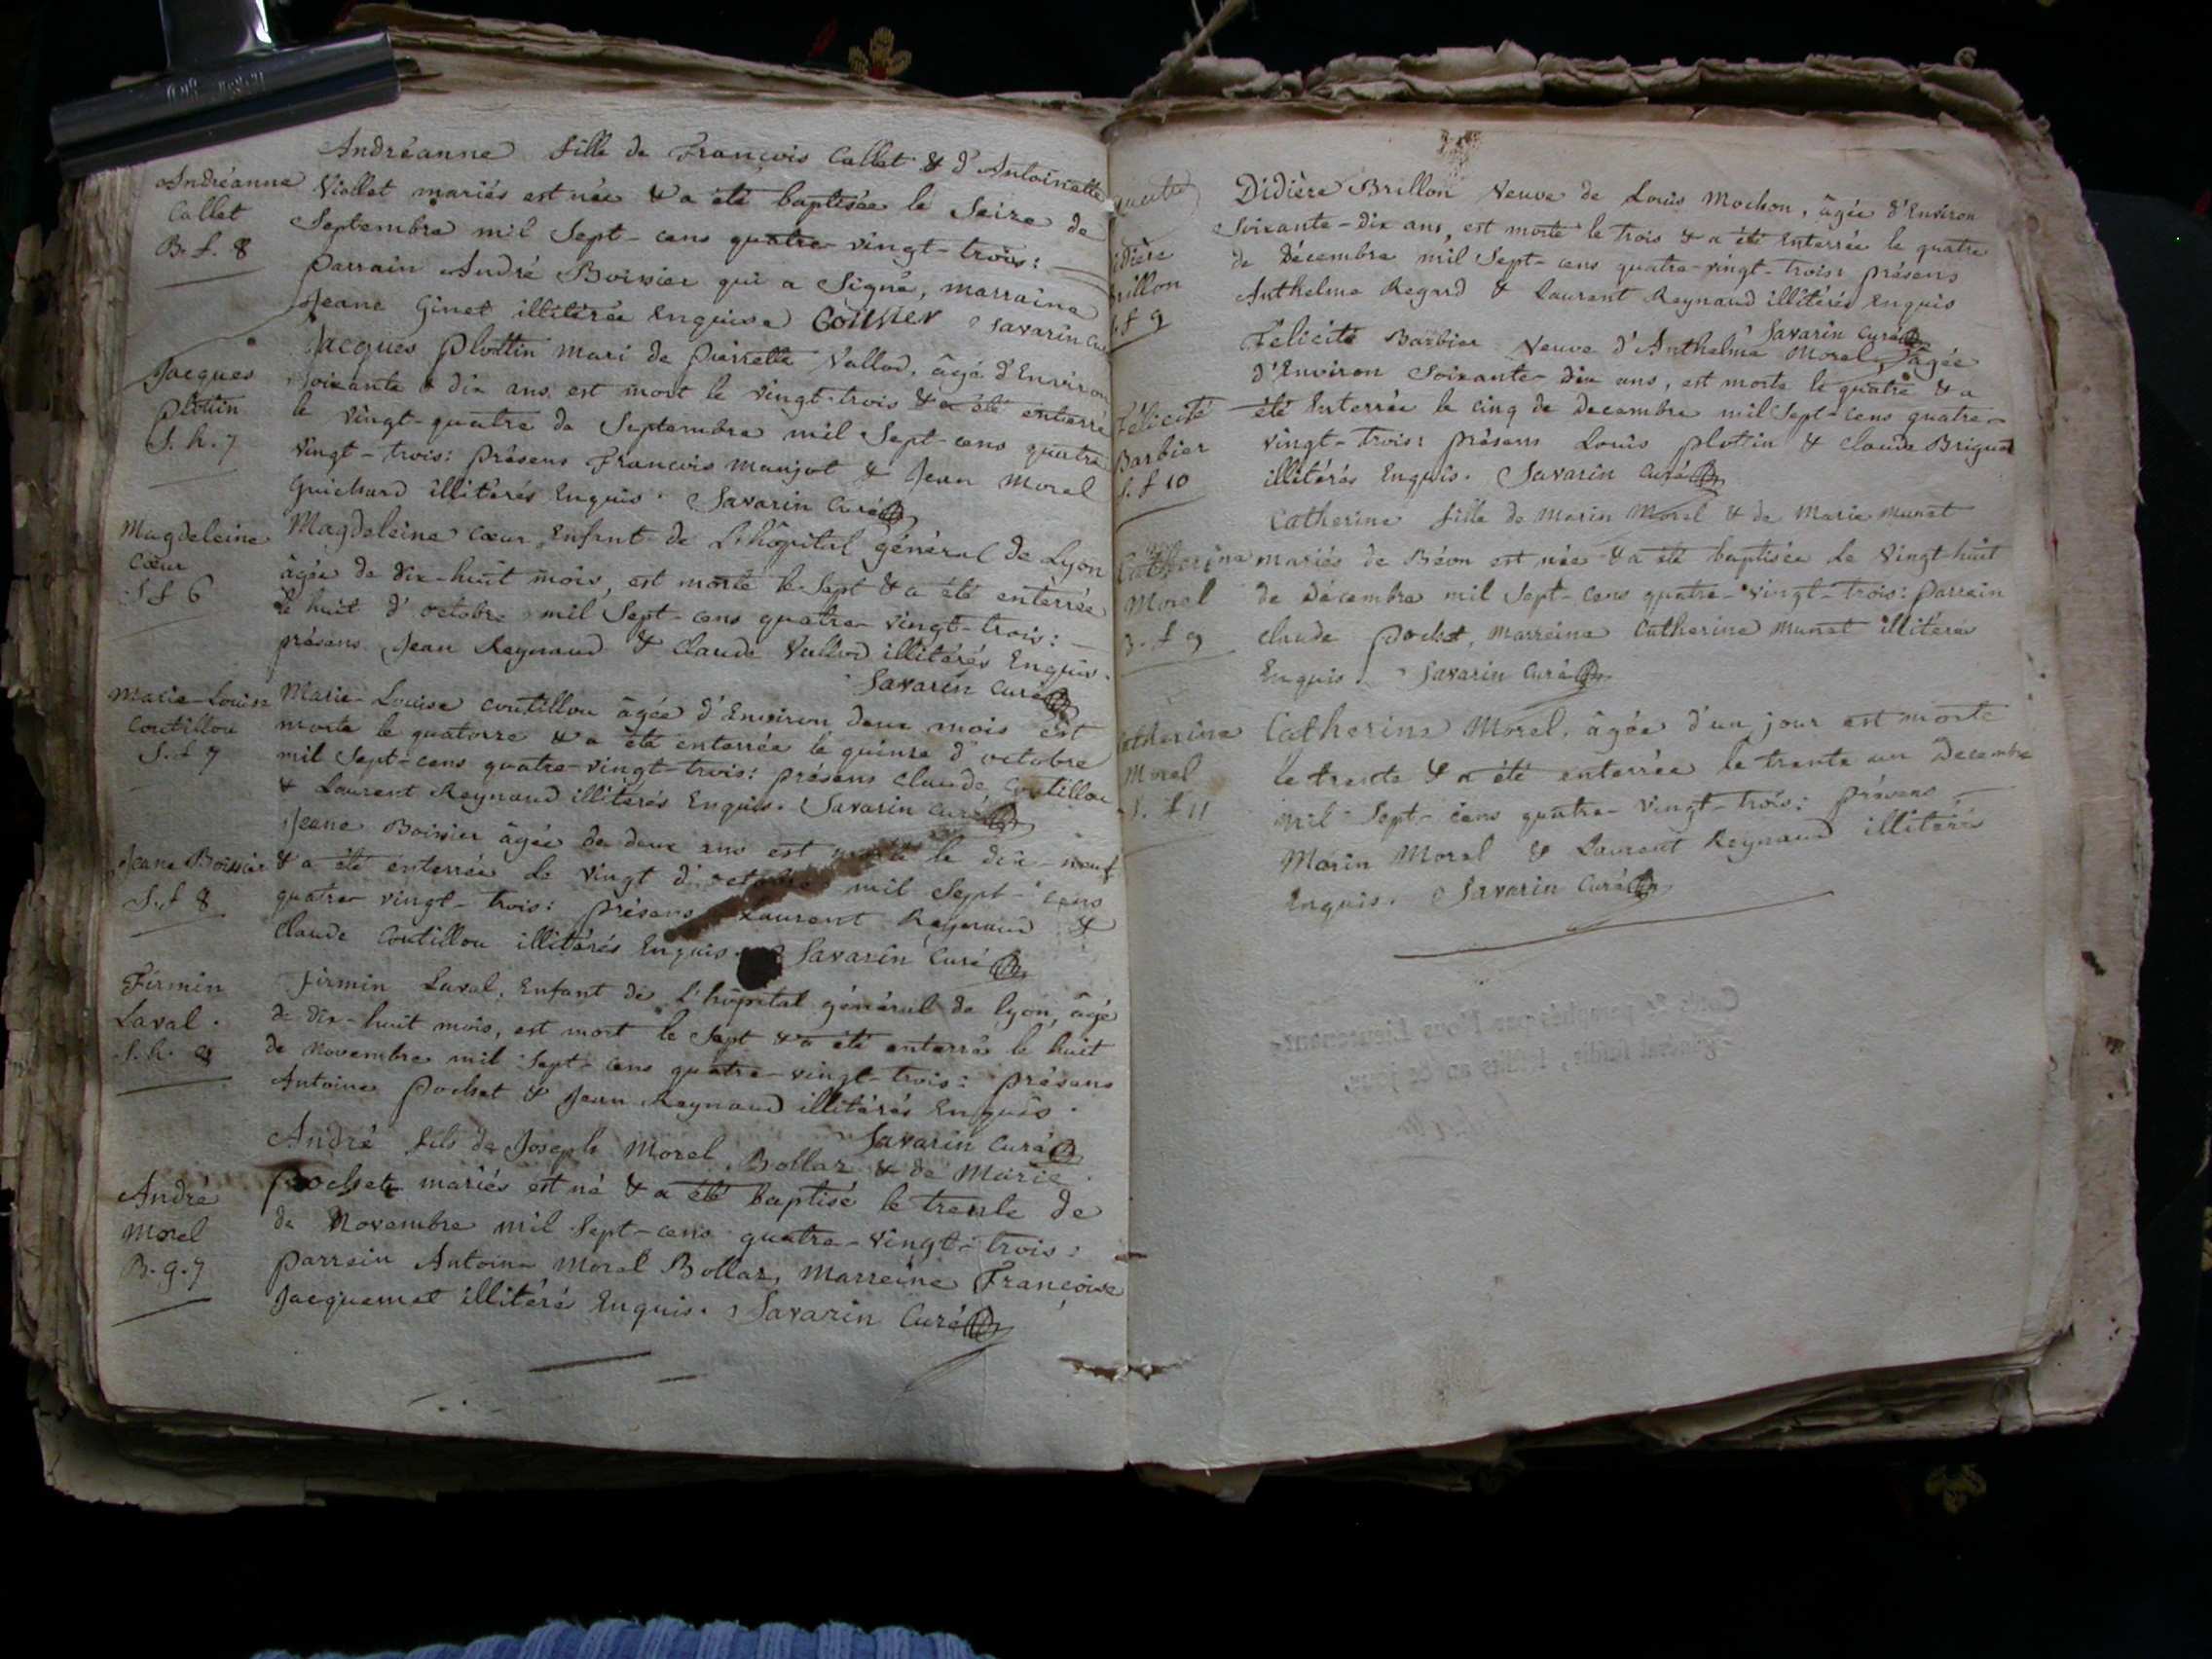 Andréanne fille de François Callet & d'Antoinette
Andréanne
Callet
B. f. 8
Viollet mariés est née & a été baptisée le Seize de
Septembre mil Sept-cens quatre-vingt-trois:
parrain André Boissier qui a Signé, marraine
Jeane Ginet illitérée Enquise Savarin Curé
Jacques
plottin
S. h. 7
Jacques plottin mari de pierrette Vallod, âgé d'Environ
soixante & dix ans, est mort le vingt-trois & a été enterré
le vingt-quatre de Septembre mil Sept-cens quatre
vingt-trois: présens François manjot & Jean Morel
Guichard illitérés Enquis. Savarin Curé
Magdeleine
Cœur
S f 6
Magdeleine Cœur, Enfant de L'hôpital général de Lyon
âgée de dix-huit mois, est morte le Sept & a été enterrée
Le huit d'octobre mil Sept-cens quatre-vingt-trois:
présens Jean Reynaud & Claude Vallod illitérés Enquis.
Savarin Curé
Marie-Louise
Coutillou
S. f 7
Marie-Louise coutillou âgée d'Environ deux mois est
morte le quatorze & a été enterrée le quinze d'octobre
mil Sept-cens quatre-vingt-trois: présens Claude Coutillou
& Laurent Reynaud illitérés Enquis. Savarin Curé
Jeane Boissier
S. f 8
Jeane Boissier âgée de deux ans est morte le dix-neuf
& a été enterrée Le vingt d'octobre mil Sept-cens
quatre vingt-trois: présens Laurent Reynaud &
Claude Coutillou illitérés Enquis. Savarin Curé
Firmin
Laval.
S. h. 8
Firmin Laval, Enfant de L'hôpital général de Lyon, âgé
de dix-huit mois, est mort le Sept & a été enterré le huit
de Novembre mil Sept-cens quatre-vingt-trois: présens
Antoine pochet & Jean Reynaud illitérés Enquis.
Savarin Curé
André
Morel
B. g. 7
André fils de Joseph Morel Bollaz & de Marie
pochet mariés est né & a été baptisé le trente de
de Novembre mil Sept-cens quatre-vingt-trois:
parrein Antoine Morel Bollaz, Marreine Françoise
Jacquemet illitérés Enquis. Savarin Curé
idière
rillon
f 9
Didière Brillon Veuve de Louis Mochon, âgée d'Environ
Soixante-dix ans, est morte le trois & a été Enterrée le quatre
de Décembre mil Sept-cens quatre-vingt-trois: présens
Anthelme Regard & Laurent Reynaud illitérés Enquis
Savarin Curé
Félicité
Barbier
S. f 10
Félicité Barbier Veuve d'Anthelme Morel, âgée
d'Environ Soixante-dix ans, est morte le quatre & a
été Enterrée le cinq de decembre mil Sept-cens quatre-
vingt-trois: présens Louis plottin & Claude
illitérés Enquis. Savarin Curé
Catherine
Morel
B. f 9
Catherine fille de Marin Morel & de Marie Munet
mariés de Béon est née & a été baptisée Le Vingt huit
de Décembre mil Sept-cens quatre-vingt-trois: parrein
Claude pochet, marreine Catherine Munet illitérés
Enquis. Savarin Curé
Catherine
Morel
S. f 11
Catherine Morel, âgée d'un jour est morte
le trente & a été enterrée le trente un Decembre
mil Sept-cens quatre-vingt-trois: présens
Marin Morel & Laurent Reynaud illitérés
Enquis. Savarin Curé